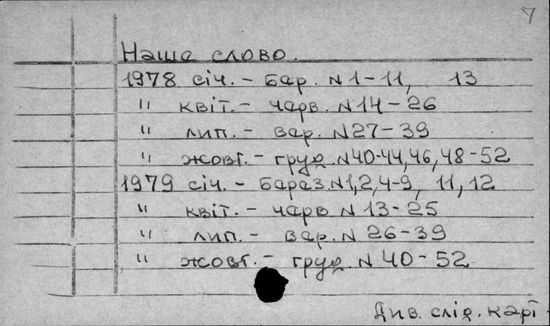 7
Наше слово.
1978 січ. - бар. N1-11, 13
" квіт. - чарв. N14-26
" лип. - вар. N27-39
" жовт. - груд N40-44,46,48-52
1979 січ. - бараз N1,2,4-9, 11,12
" квіт. - чарв N 13-25
" лип. - вар. N 26-39
" жовт. - груд. N 40-52
Див. слід. карт